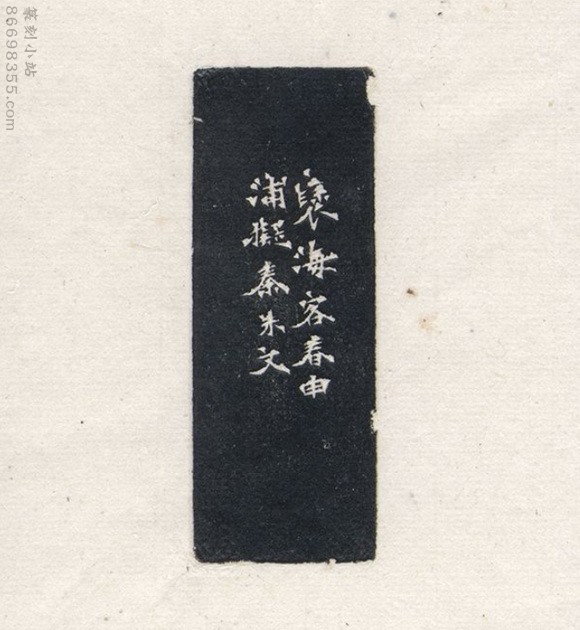 褱海客春申
浦擬秦朱文
篆刻小站
86698355.com